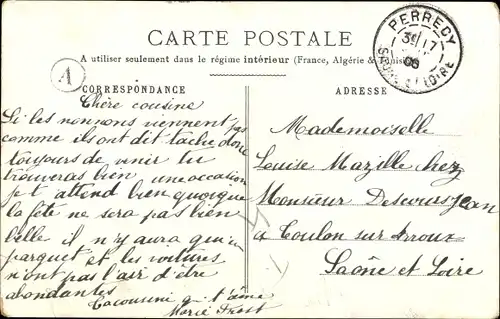 CARTE POSTALE
A utiliser seulement dans le régime intérieur (France, Algérie & Tunisie)
CORRESPONDANCE
ADRESSE
PERRECY
SAONE ET LOIRE
A
Chère cousine
Si les nonnons viennent pas
comme ils ont dit tache donc
toujours de venir tu
trouveras bien une occation
je t attend bien quoique
la fete ne sera pas bien
belle il n'y aura qu'un
parquet et les voitures
n'ont pas l'air d'être
abondantes
ta cousine qui t'aime
Marie
Mademoiselle
Louise Mazille chez
Monsieur Jean
a Toulon sur Arroux
Saône et Loire